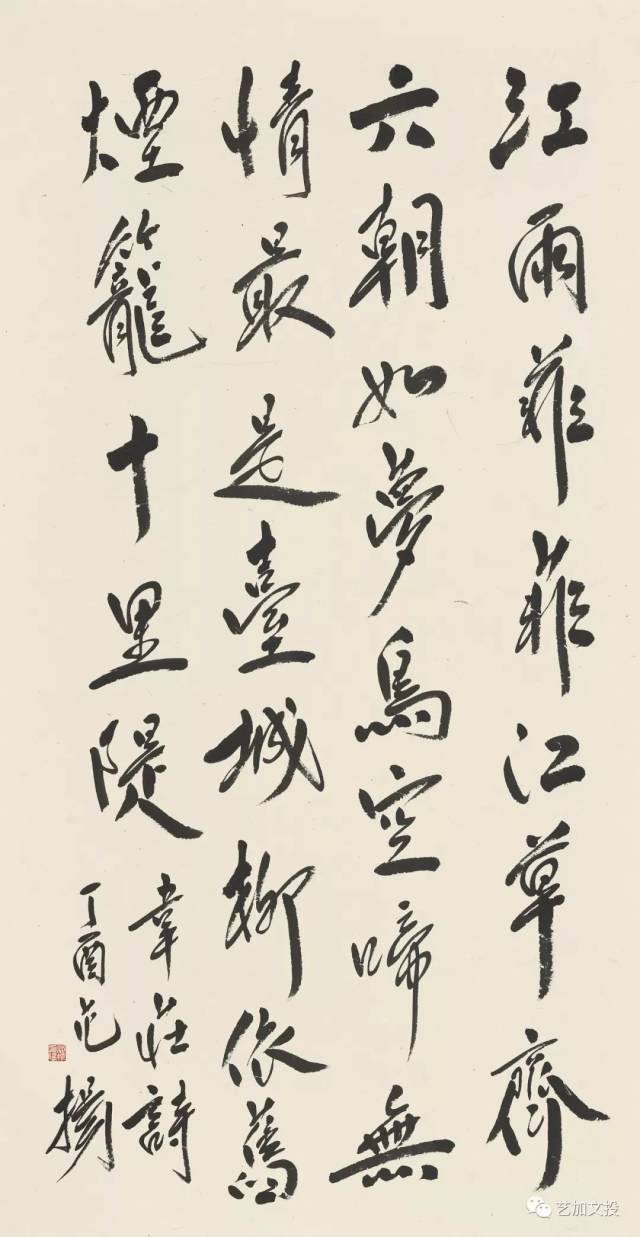 江雨菲菲江草齊
六朝如夢鳥空啼無
情最是臺城柳依舊
煙籠十里隄
韋莊詩
丁酉范揚
艺加文投